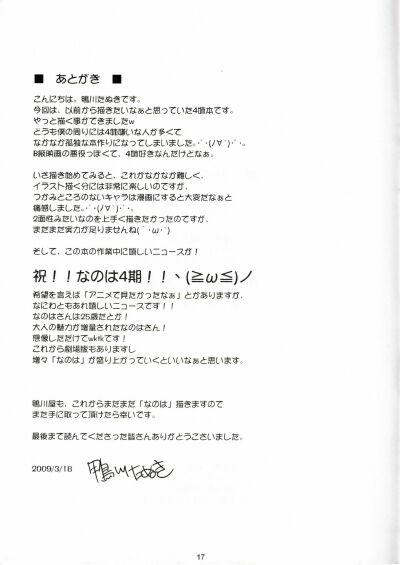 ■ あとがき ■
こんにちは。鴨川たぬきです。
今回は、以前から描きたいなぁと思っていた4姉本です。
やっと描く事ができましたw
どうも僕の周りには4姉嫌いな人が多くて
なかなか孤独な本作りになってしまいました。･ﾟ･(ﾉ∀`)･ﾟ･。
B級映画の悪役っぽくて、4姉好きなんだけどなぁ。
いざ描き始めてみると、これがなかなか難しく、
イラスト描く分には非常に楽しいのですが、
つかみどころのないキャラは漫画にすると大変だなぁと
痛感しました。･ﾟ･(ﾉ∀`)･ﾟ･。
2面性みたいなのを上手く描きたかったのですが、
まだまだ実力が足りませんね(｀･ω･´)
そして、この本の作業中に嬉しいニュースが！
祝！！なのは4期！！ヽ(≧ω≦)ノ
希望を言えば「アニメで見たかったなぁ」とかありますが、
なにわともあれ嬉しいニュースです！！
なのはさんは25歳だとか！
大人の魅力が増量されたなのはさん！
想像しただけでwktkです！
これから劇場版もありますし
増々「なのは」が盛り上がっていくといいなぁと思います。
鴨川屋も、これからまだまだ「なのは」描きますので
また手に取って頂けたら幸いです。
最後まで読んでくださった皆さんありがとうございました。
2009/3/18 鴨川たぬき
17